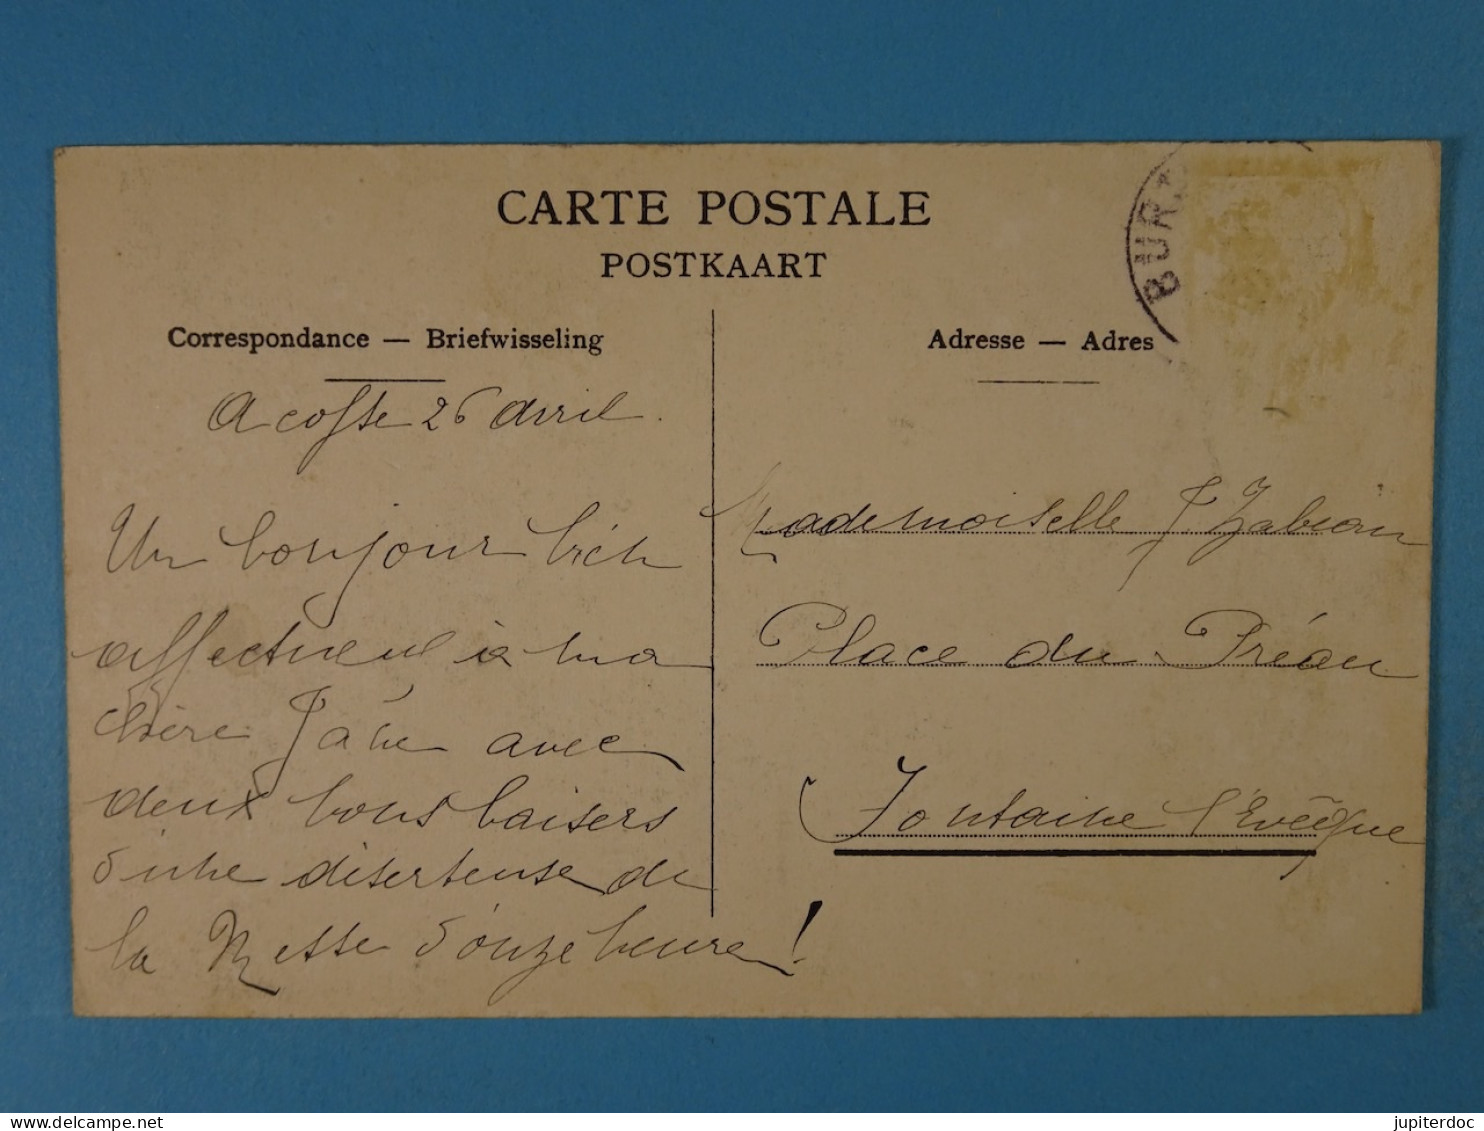 CARTE POSTALE
POSTKAART
BUR
Correspondance — Briefwisseling
Adresse — Adres
Acosse 26 avril.
Un bonjour bien
affectueux à ma
chère Jane avec
deux bons baisers
d'une déserteuse de
la Messe d'onze heure!
Mademoiselle J. Fabian
Place du Préau
Fontaine l'Evêque
jupiterdoc